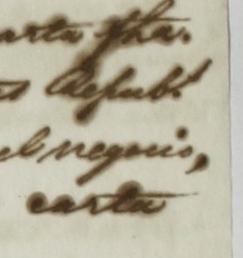 carta fha.
s Repub.ˢ
el negocio,
carta